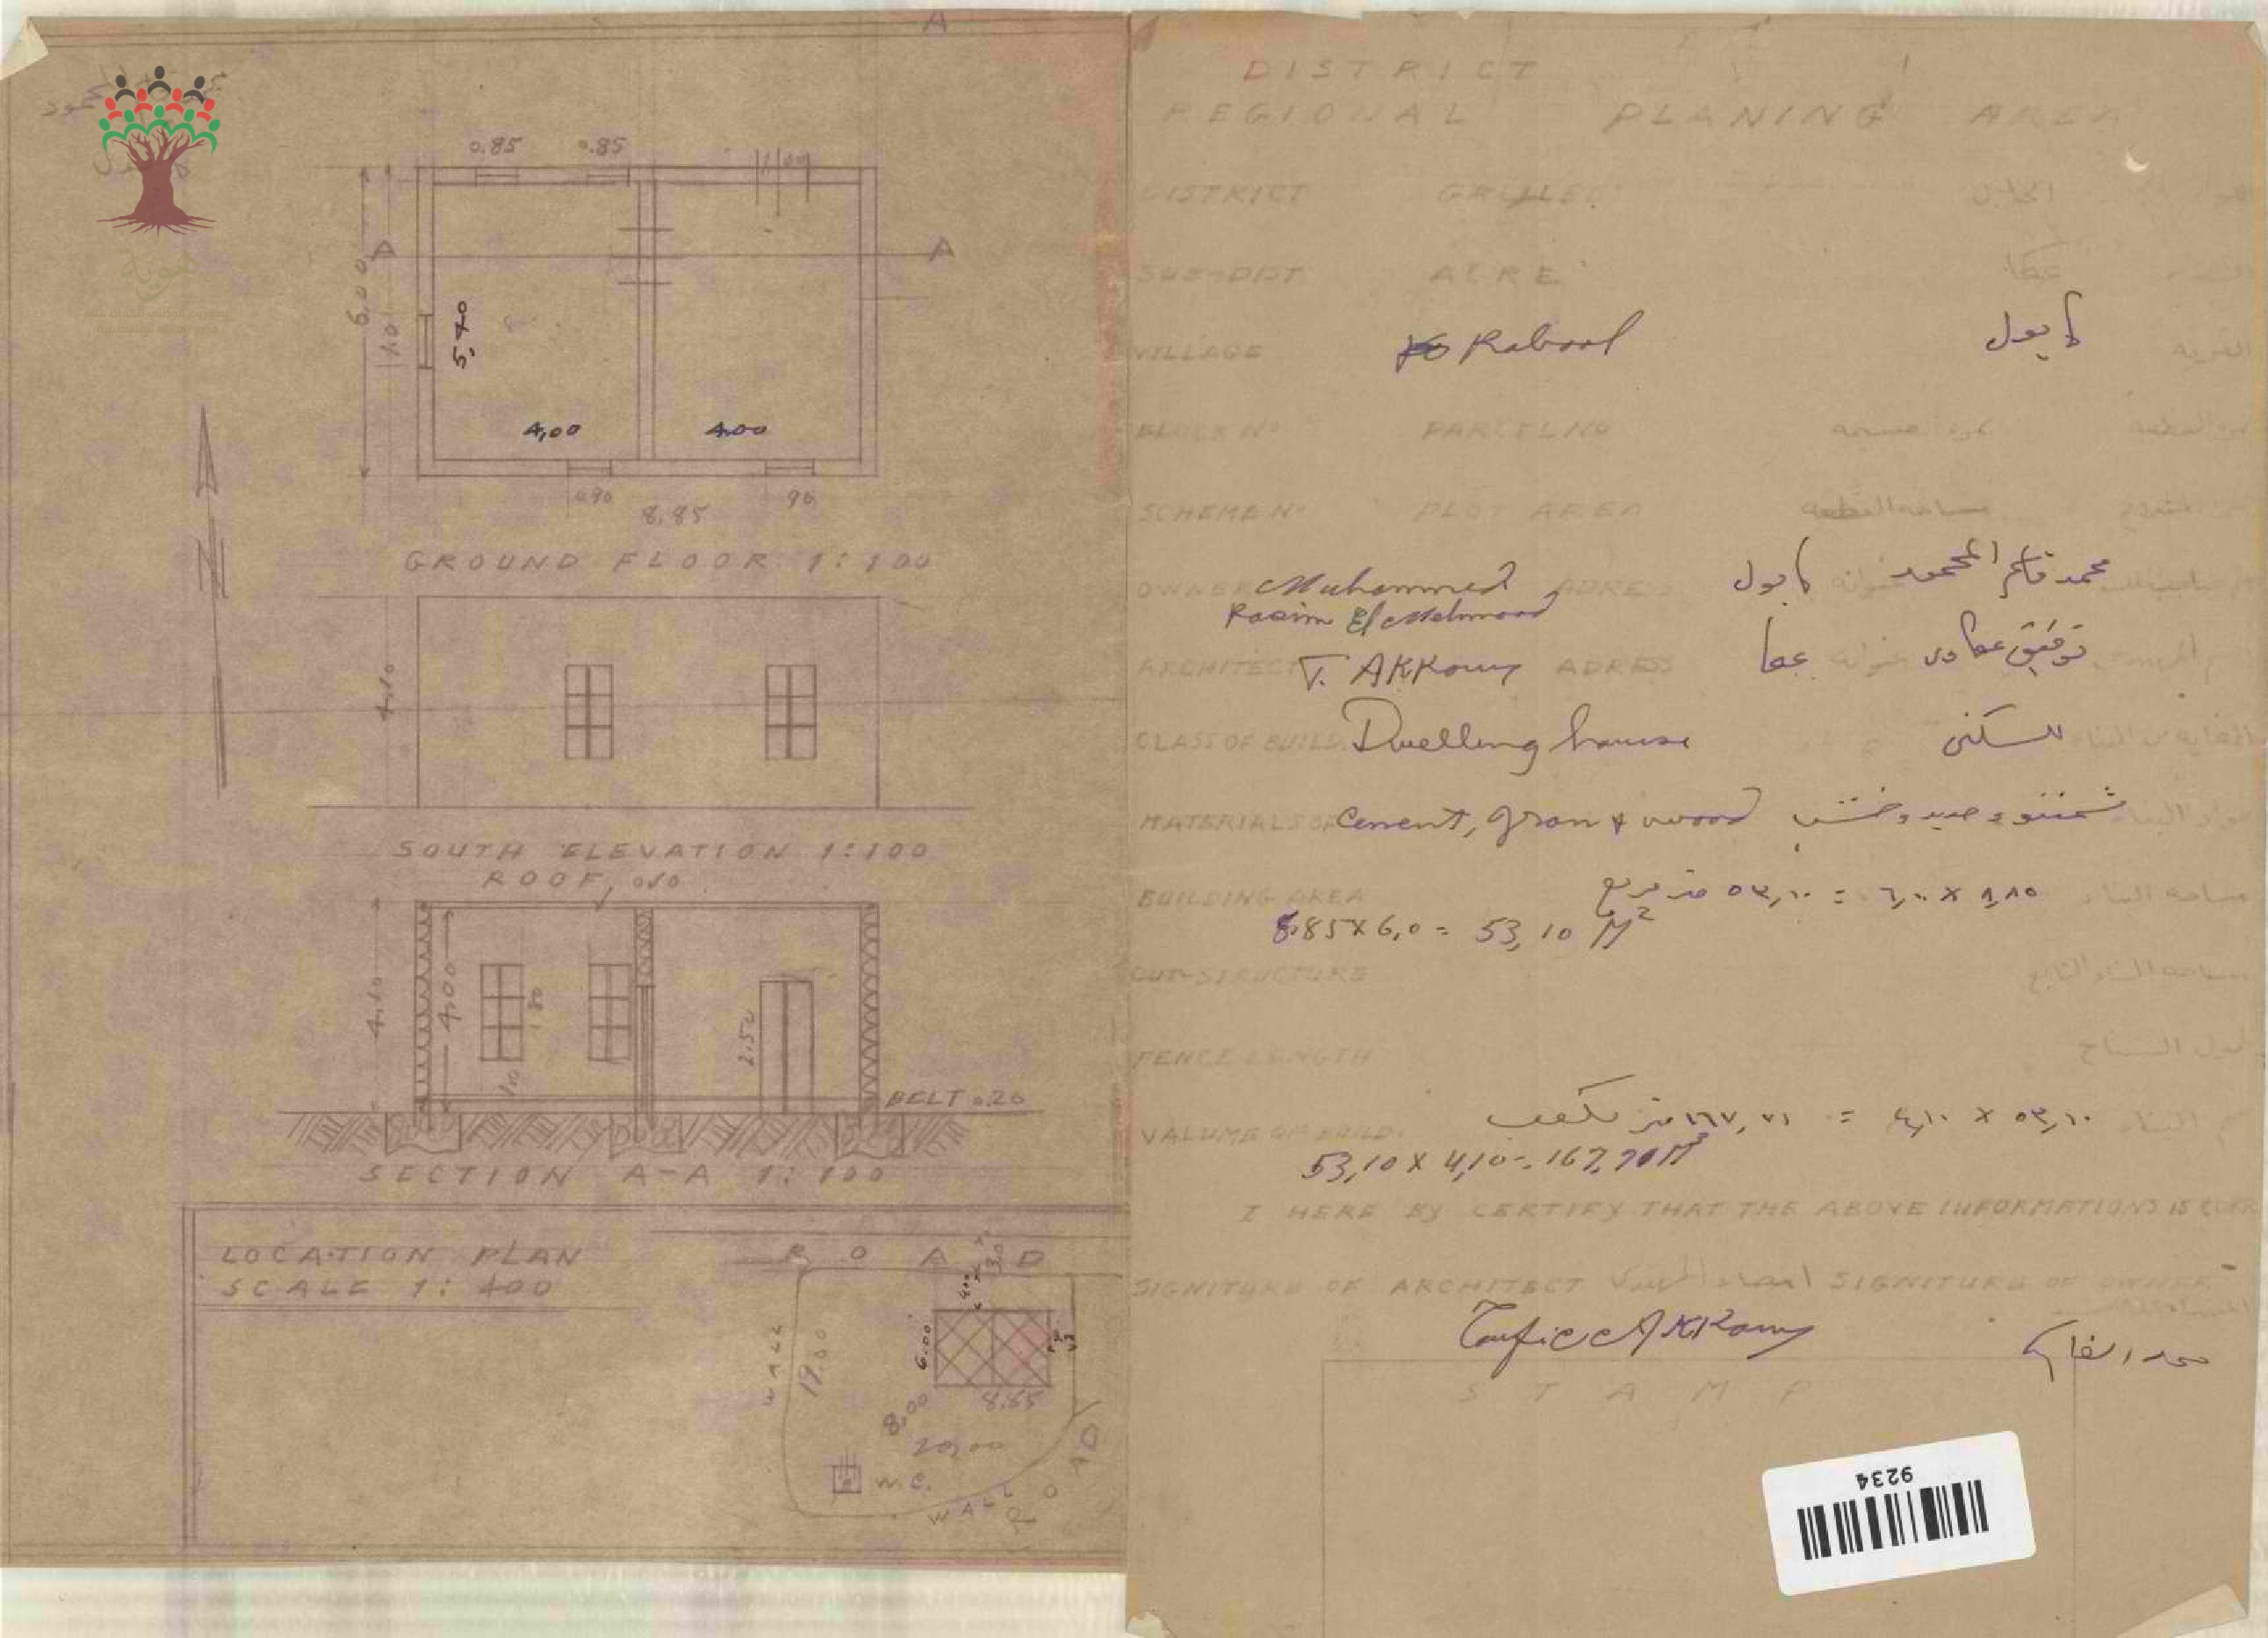 A
0.85 0.85 1.00
A A
6,00
1.10
5,40
4,00 4.00
0.90 90
8.85
GROUND FLOOR 1:100
N
4.10
SOUTH ELEVATION 1:100
ROOF, 0.10
4.10
4.00
1.80
1.10
2.50
BELT 0.20
SECTION A-A 1:100
LOCATION PLAN
SCALE 1:400
ROAD
3.0
4.00
WALL
17.00
6.00
8.85
8,00
20,00
W.C.
WALL
ROAD
هوية
DISTRICT
REGIONAL PLANING AREA
DISTRICT GALILEE الجليل
SUB-DIST ACRE عكا
VILLAGE Kabool كابول القرية
BLOCK No PARCEL NO
SCHEME No PLOT AREA مساحة القطعة مشروع
OWNER Muhammed ADRESS محمد قاسم المحمود عنوانه كابول
Kasim El Mahmood
ARCHITECT T. AKKawy ADRESS توفيق عكاوي عنوانه عكا
CLASS OF BUILD. Dwelling house للسكنى الغاية من البناء
MATERIALS OF Cement, Iron & wood شمنتو وحديد وخشب مواد البناء
BUILDING AREA ٨,٨٥ × ٦,٠٠ = ٥٣,١٠ متر مربع مساحة البناء
8.85 X 6,0 = 53,10 M²
OUT-STRUCTURE مساحة البناء التابع
FENCE LENGTH طول السياج
VALUME OF BUILD. ٥٣,١٠ × ٤,١٠ = ١٦٧,٧١ متر مكعب
53,10 X 4,10 = 167,70 M³
I HERE BY CERTIFY THAT THE ABOVE INFORMATIONS IS CORR
SIGNITURE OF ARCHITECT امضاء المهندس SIGNITURE OF OWNER
Taufic AKKawy محمد القاسم
STAMP
9234